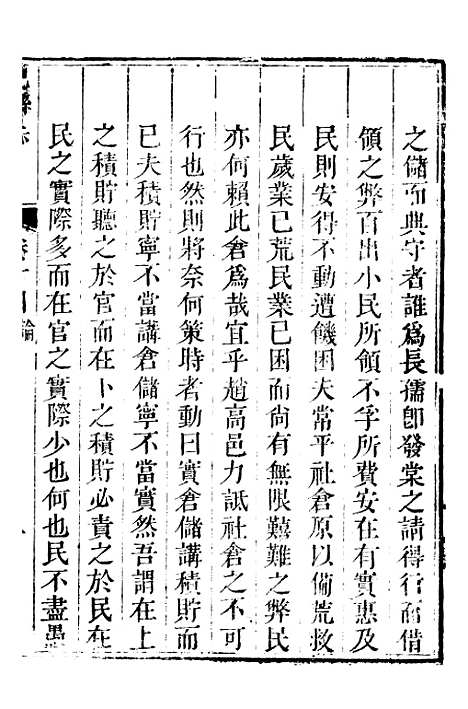 之儲而典守者誰爲長孺卽發棠之請得行而借
領之弊百出小民所領不孚所費安在有實惠及
民則安得不動遭饑困夫常平社倉原以備荒救
民歲業已荒民業已困而尚有無限囏難之弊民
亦何賴此倉爲哉宜乎趙高邑力詆社倉之不可
行也然則將奈何策時者動曰實倉儲講積貯而
已夫積貯寧不當講倉儲寧不當實然吾謂在上
之積貯聽之於官而在下之積貯必責之於民在
民之實際多而在官之實際少也何也民不盡愚
志
卷十四 論